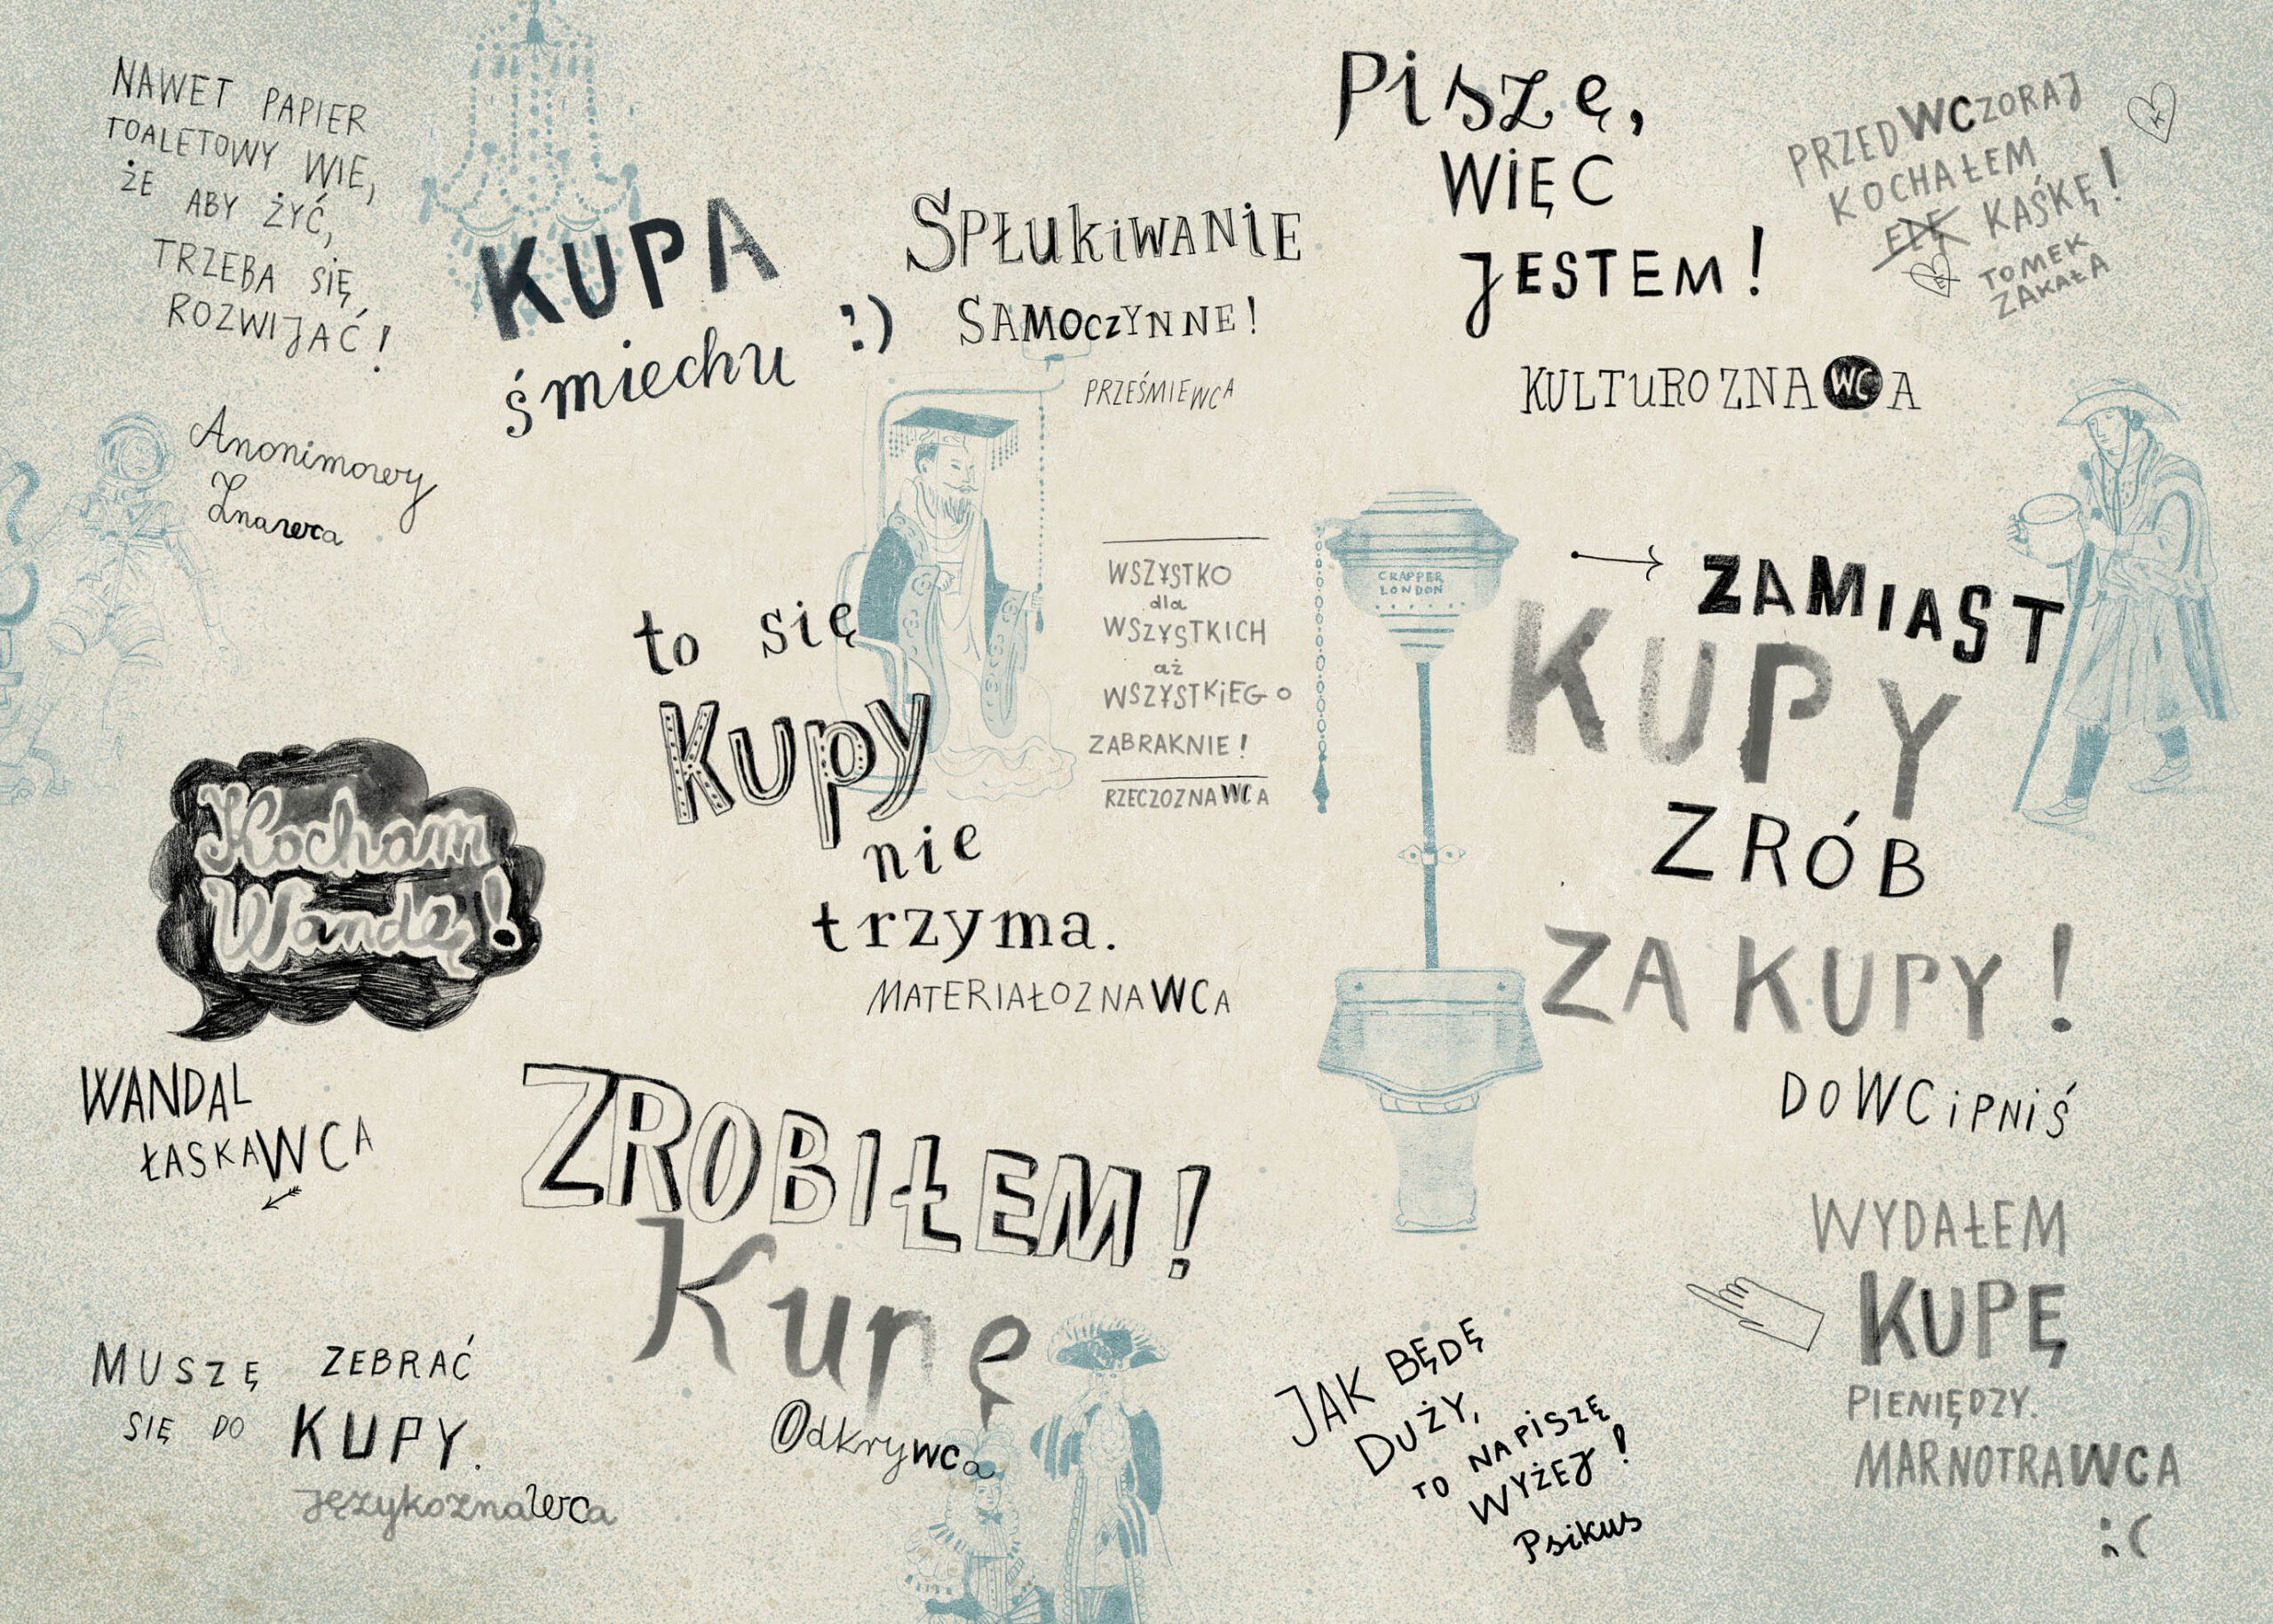 NAWET PAPIER
TOALETOWY WIE,
ŻE ABY ŻYĆ,
TRZEBA SIĘ
ROZWIJAĆ!
Anonimowy
Znawca
KUPA
śmiechu :)
SPŁukiWANiE
SAMOCZYNNE!
PRZEŚMIEWCA
Piszę,
WiĘC
JESTEM!
KULTUROZNAWCA
PRZEDWCZORAJ
KOCHAŁEM
ELĘ KAŚKĘ!
TOMEK
ZAKAŁA
K
E
to się
Kupy
nie
trzyma.
MATERIAŁOZNAWCA
WSZYSTKO
dla
WSZYSTKICH
aż
WSZYSTKiEGO
ZABRAKNIE!
RZECZOZNAWCA
CRAPPER
LONDON
ZAMIAST
KUPY
ZRÓB
ZAKUPY!
DOWCiPNiŚ
Kocham
Wandę!
WANDAL
ŁASKAWCA
ZROBIŁEM!
Kupę
Odkrywca
MUSZĘ ZEBRAĆ
SIĘ DO KUPY.
Językoznawca
JAK BĘDĘ
DUŻY,
TO NAPiSZĘ
WYŻEJ!
Psikus
WYDAŁEM
KUPĘ
PIENIĘDZY.
MARNOTRAWCA
;(